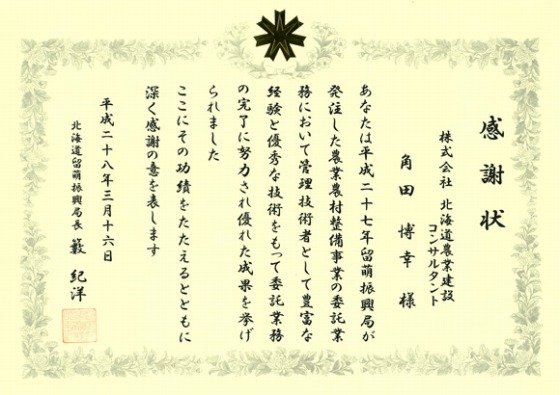 感謝状
株式会社 北海道農業建設
コンサルタント
角田 博幸 様
あなたは平成二十七年留萌振興局が
発注した農業農村整備事業の委託業
務において管理技術者として豊富な
経験と優秀な技術をもって委託業務
の完了に努力され優れた成果を挙げ
られました
ここにその功績をたたえるとともに
深く感謝の意を表します
平成二十八年三月十六日
北海道留萌振興局長 籔 紀洋